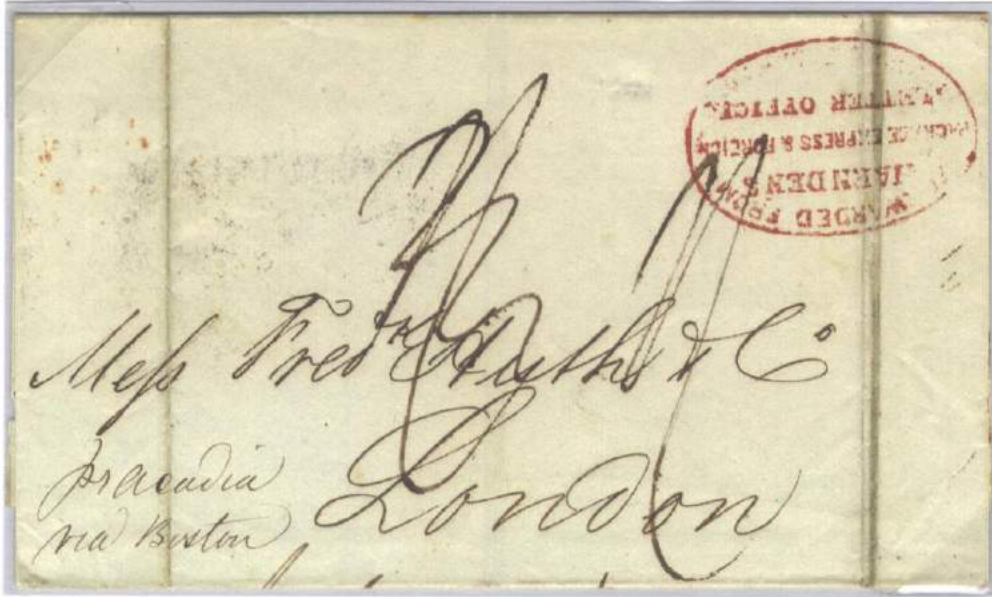 WARDED FROM
HARNDEN'S
PACKAGE EXPRESS & FOREIGN
LETTER OFFICE
Mess Fredk Huth & Co
London
pr Acadia
via Boston